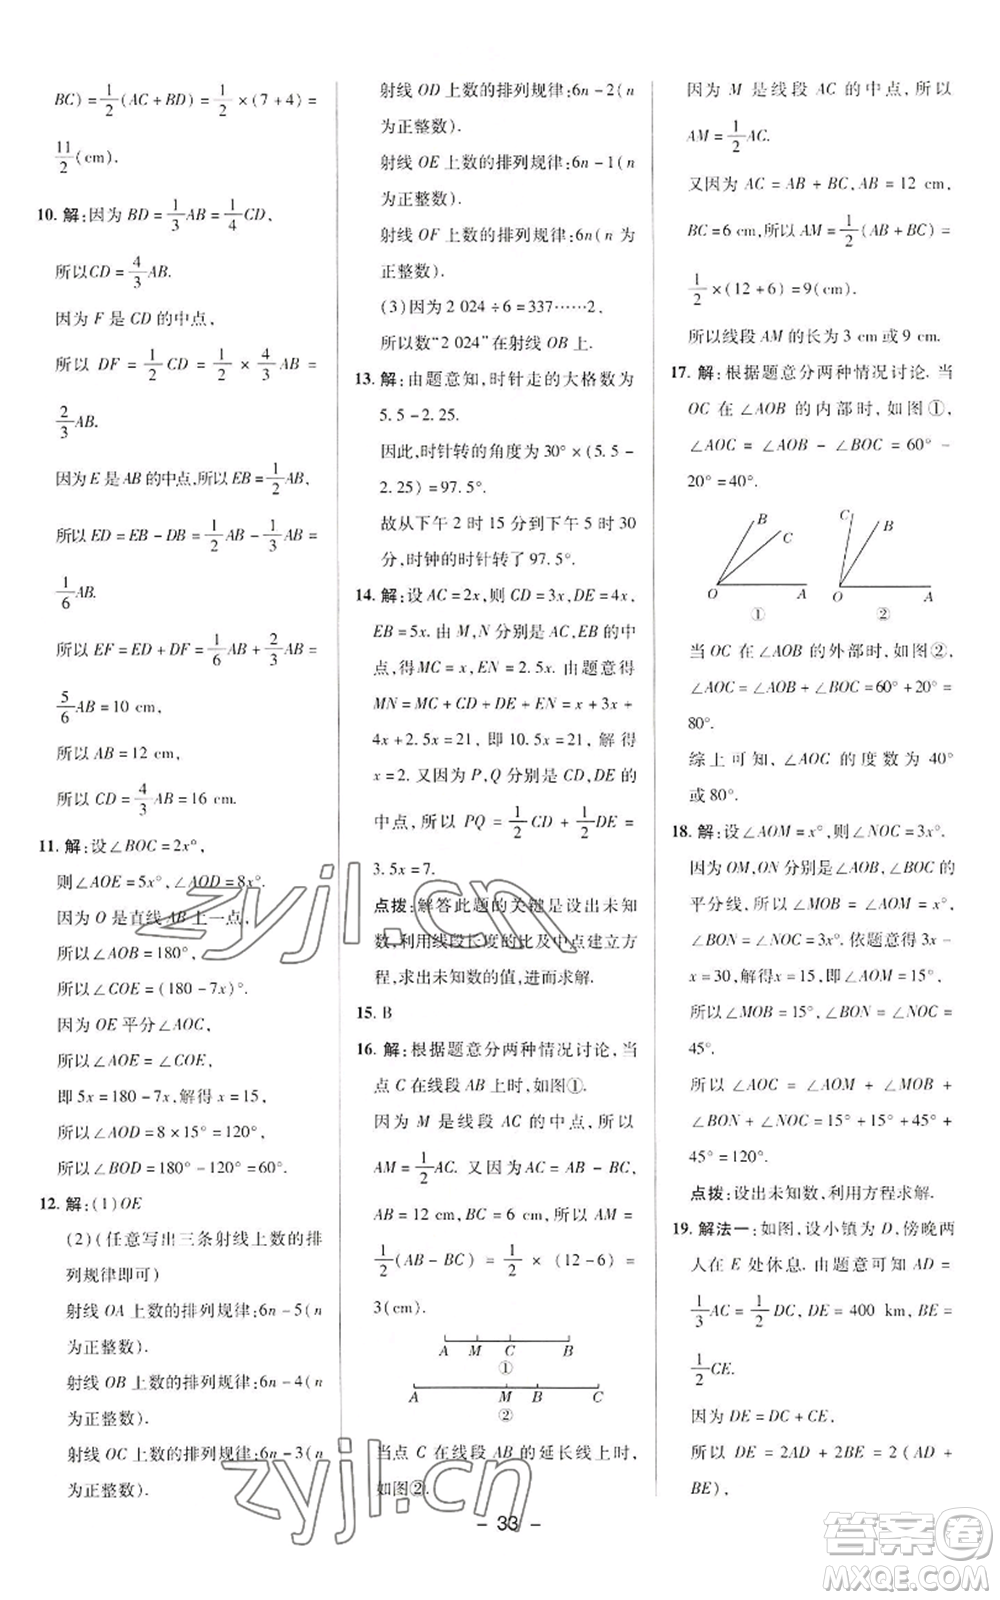 BC) = 1/2(AC + BD) = 1/2 × (7 + 4) =
11/2(cm).
10. 解:因为 BD = 1/3AB = 1/4CD,
所以CD = 4/3AB.
因为 F 是 CD 的中点,
所以 DF = 1/2CD = 1/2 × 4/3AB =
2/3AB.
因为 E 是 AB 的中点,所以 EB = 1/2AB,
所以 ED = EB - DB = 1/2AB - 1/3AB =
1/6AB.
所以 EF = ED + DF = 1/6AB + 2/3AB =
5/6AB = 10 cm,
所以 AB = 12 cm,
所以 CD = 4/3AB = 16 cm.
11. 解:设∠BOC = 2x°,
则∠AOE = 5x°,∠AOD = 8x°.
因为 O 是直线 AB 上一点,
所以∠AOB = 180°,
所以∠COE = (180 - 7x)°.
因为 OE 平分∠AOC,
所以∠AOE = ∠COE,
即 5x = 180 - 7x,解得 x = 15,
所以∠AOD = 8 × 15° = 120°,
所以∠BOD = 180° - 120° = 60°.
12. 解:(1)OE
(2)(任意写出三条射线上数的排
列规律即可)
射线 OA 上数的排列规律:6n - 5(n
为正整数).
射线 OB 上数的排列规律:6n - 4(n
为正整数).
射线 OC 上数的排列规律:6n - 3(n
为正整数).
射线 OD 上数的排列规律:6n - 2(n
为正整数).
射线 OE 上数的排列规律:6n - 1(n
为正整数).
射线 OF 上数的排列规律:6n(n 为
正整数).
(3)因为 2 024 ÷ 6 = 337……2,
所以数“2 024”在射线 OB 上.
13. 解:由题意知,时针走的大格数为
5. 5 - 2. 25.
因此,时针转的角度为 30° × (5. 5 -
2. 25) = 97. 5°.
故从下午 2 时 15 分到下午 5 时 30
分,时钟的时针转了 97. 5°.
14. 解:设 AC = 2x,则 CD = 3x,DE = 4x,
EB = 5x. 由 M,N 分别是 AC,EB 的中
点,得 MC = x,EN = 2. 5x. 由题意得
MN = MC + CD + DE + EN = x + 3x +
4x + 2. 5x = 21, 即 10. 5x = 21, 解 得
x = 2. 又因为 P,Q 分别是 CD,DE 的
中点,所以 PQ = 1/2CD + 1/2DE =
3. 5x = 7.
点拨:解答此题的关键是设出未知
数,利用线段长度的比及中点建立方
程,求出未知数的值,进而求解.
15. B
16. 解:根据题意分两种情况讨论,当
点 C 在线段 AB 上时,如图①.
因为 M 是线段 AC 的中点,所以
AM = 1/2AC. 又因为 AC = AB - BC,
AB = 12 cm,BC = 6 cm,所以 AM =
1/2(AB - BC) = 1/2 × (12 - 6) =
3(cm).
A M C B
①
A M B C
②
当点 C 在线段 AB 的延长线上时,
如图②.
因为 M 是线段 AC 的中点,所以
AM = 1/2AC.
又因为 AC = AB + BC,AB = 12 cm,
BC = 6 cm,所以 AM = 1/2(AB + BC) =
1/2 × (12 + 6) = 9(cm).
所以线段 AM 的长为 3 cm 或 9 cm.
17. 解:根据题意分两种情况讨论. 当
OC 在∠AOB 的内部时,如图①,
∠AOC = ∠AOB - ∠BOC = 60° -
20° = 40°.
B C O A
①
C B O A
②
当 OC 在∠AOB 的外部时,如图②,
∠AOC = ∠AOB + ∠BOC = 60° + 20° =
80°.
综上可知,∠AOC 的度数为 40°
或 80°.
18. 解:设∠AOM = x°,则∠NOC = 3x°.
因为 OM,ON 分别是∠AOB,∠BOC 的
平分线,所以∠MOB = ∠AOM = x°,
∠BON = ∠NOC = 3x°. 依题意得 3x -
x = 30,解得 x = 15,即∠AOM = 15°,
所以∠MOB = 15°,∠BON = ∠NOC =
45°.
所以 ∠AOC = ∠AOM + ∠MOB +
∠BON + ∠NOC = 15° + 15° + 45° +
45° = 120°.
点拨:设出未知数,利用方程求解.
19. 解法一:如图,设小镇为 D,傍晚两
人在 E 处休息. 由题意可知 AD =
1/3AC = 1/2DC, DE = 400 km, BE =
1/2CE.
因为 DE = DC + CE,
所以 DE = 2AD + 2BE = 2(AD +
BE),
- 33 -
zyjl.cn
zyjl.cn
答案圈
MXQE.COM